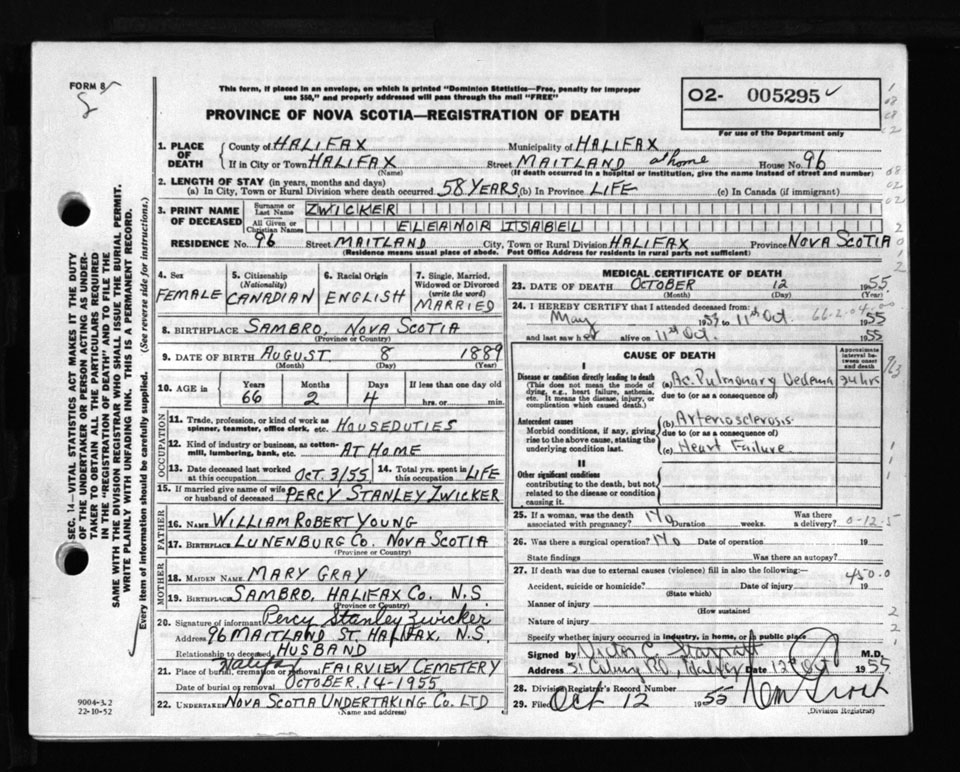 FORM 8
This form, if placed in an envelope, on which is printed "Dominion Statistics—Free, penalty for improper
use $50," and properly addressed will pass through the mail "FREE"
PROVINCE OF NOVA SCOTIA—REGISTRATION OF DEATH
02- 005295
For use of the Department only
SEC. 14—VITAL STATISTICS ACT MAKES IT THE DUTY
OF THE UNDERTAKER OR PERSON ACTING AS UNDER-
TAKER TO OBTAIN ALL THE PARTICULARS REQUIRED
IN THE "REGISTRATION OF DEATH" AND TO FILE THE
SAME WITH THE DIVISION REGISTRAR WHO SHALL ISSUE THE BURIAL PERMIT.
WRITE PLAINLY WITH UNFADING INK. THIS IS A PERMANENT RECORD.
Every item of information should be carefully supplied. (See reverse side for instructions.)
1. PLACE OF DEATH
County of HALIFAX Municipality of HALIFAX
If in City or Town HALIFAX Street MAITLAND at home House No. 96
(Name) (If death occurred in a hospital or institution, give the name instead of street and number)
2. LENGTH OF STAY (in years, months and days)
(a) In City, Town or Rural Division where death occurred 58 YEARS (b) In Province LIFE (c) In Canada (if immigrant)
3. PRINT NAME OF DECEASED
Surname or Last Name ZWICKER
All Given or Christian Names ELEANOR ISABEL
RESIDENCE No. 96 Street MAITLAND City, Town or Rural Division HALIFAX Province NOVA SCOTIA
(Residence means usual place of abode. Post Office Address for residents in rural parts not sufficient)
4. Sex FEMALE
5. Citizenship (Nationality) CANADIAN
6. Racial Origin ENGLISH
7. Single, Married, Widowed or Divorced (write the word) MARRIED
8. BIRTHPLACE SAMBRO, NOVA SCOTIA
(Province or Country)
9. DATE OF BIRTH AUGUST 8 1889
(Month) (Day) (Year)
10. AGE in Years 66 Months 2 Days 4 If less than one day old hrs. or min.
OCCUPATION
11. Trade, profession, or kind of work as spinner, teamster, office clerk, etc. HOUSEDUTIES
12. Kind of industry or business, as cotton-mill, lumbering, bank, etc. AT HOME
13. Date deceased last worked at this occupation OCT. 3/55 14. Total yrs. spent in this occupation LIFE
15. If married give name of wife or husband of deceased PERCY STANLEY ZWICKER
FATHER
16. NAME WILLIAM ROBERT YOUNG
17. BIRTHPLACE LUNENBURG CO. NOVA SCOTIA
(Province or Country)
MOTHER
18. MAIDEN NAME MARY GRAY
19. BIRTHPLACE SAMBRO, HALIFAX CO. N.S
(Province or Country)
20. Signature of informant Percy Stanley Zwicker
Address 96 MAITLAND ST. HALIFAX, N.S.
Relationship to deceased HUSBAND
21. Place of burial, cremation or removal Halifax FAIRVIEW CEMETERY
Date of burial or removal OCTOBER. 14-1955
22. UNDERTAKER NOVA SCOTIA UNDERTAKING CO. LTD
(Name and address)
9004-3.2
22-10-52
MEDICAL CERTIFICATE OF DEATH
23. DATE OF DEATH OCTOBER 12 1955
(Month) (Day) (Year)
24. I HEREBY CERTIFY that I attended deceased from:
May 1953 to 11th Oct. 1955
and last saw her alive on 11th Oct. 1955
CAUSE OF DEATH
Approximate interval between onset and death
I
Disease or condition directly leading to death
(This does not mean the mode of dying, e.g., heart failure, asthenia, etc. It means the disease, injury, or complication which caused death.)
(a) Ac. Pulmonary Oedema 24 hrs
due to (or as a consequence of)
Antecedent causes
Morbid conditions, if any, giving rise to the above cause, stating the underlying condition last.
(b) Arteriosclerosis
due to (or as a consequence of)
(c) Heart Failure
II
Other significant conditions
contributing to the death, but not related to the disease or condition causing it.
25. If a woman, was the death associated with pregnancy? No Duration weeks. Was there a delivery?
26. Was there a surgical operation? No Date of operation 19
State findings Was there an autopsy?
27. If death was due to external causes (violence) fill in also the following:
Accident, suicide or homicide? Date of injury 19
(State which)
Manner of injury
(How sustained)
Nature of injury
Specify whether injury occurred in industry, in home, or in public place
Signed by Victor C. M.D.
Address Halifax Date 12 Oct 1955
28. Division Registrar's Record Number
29. Filed Oct 12 1955
(Division Registrar)